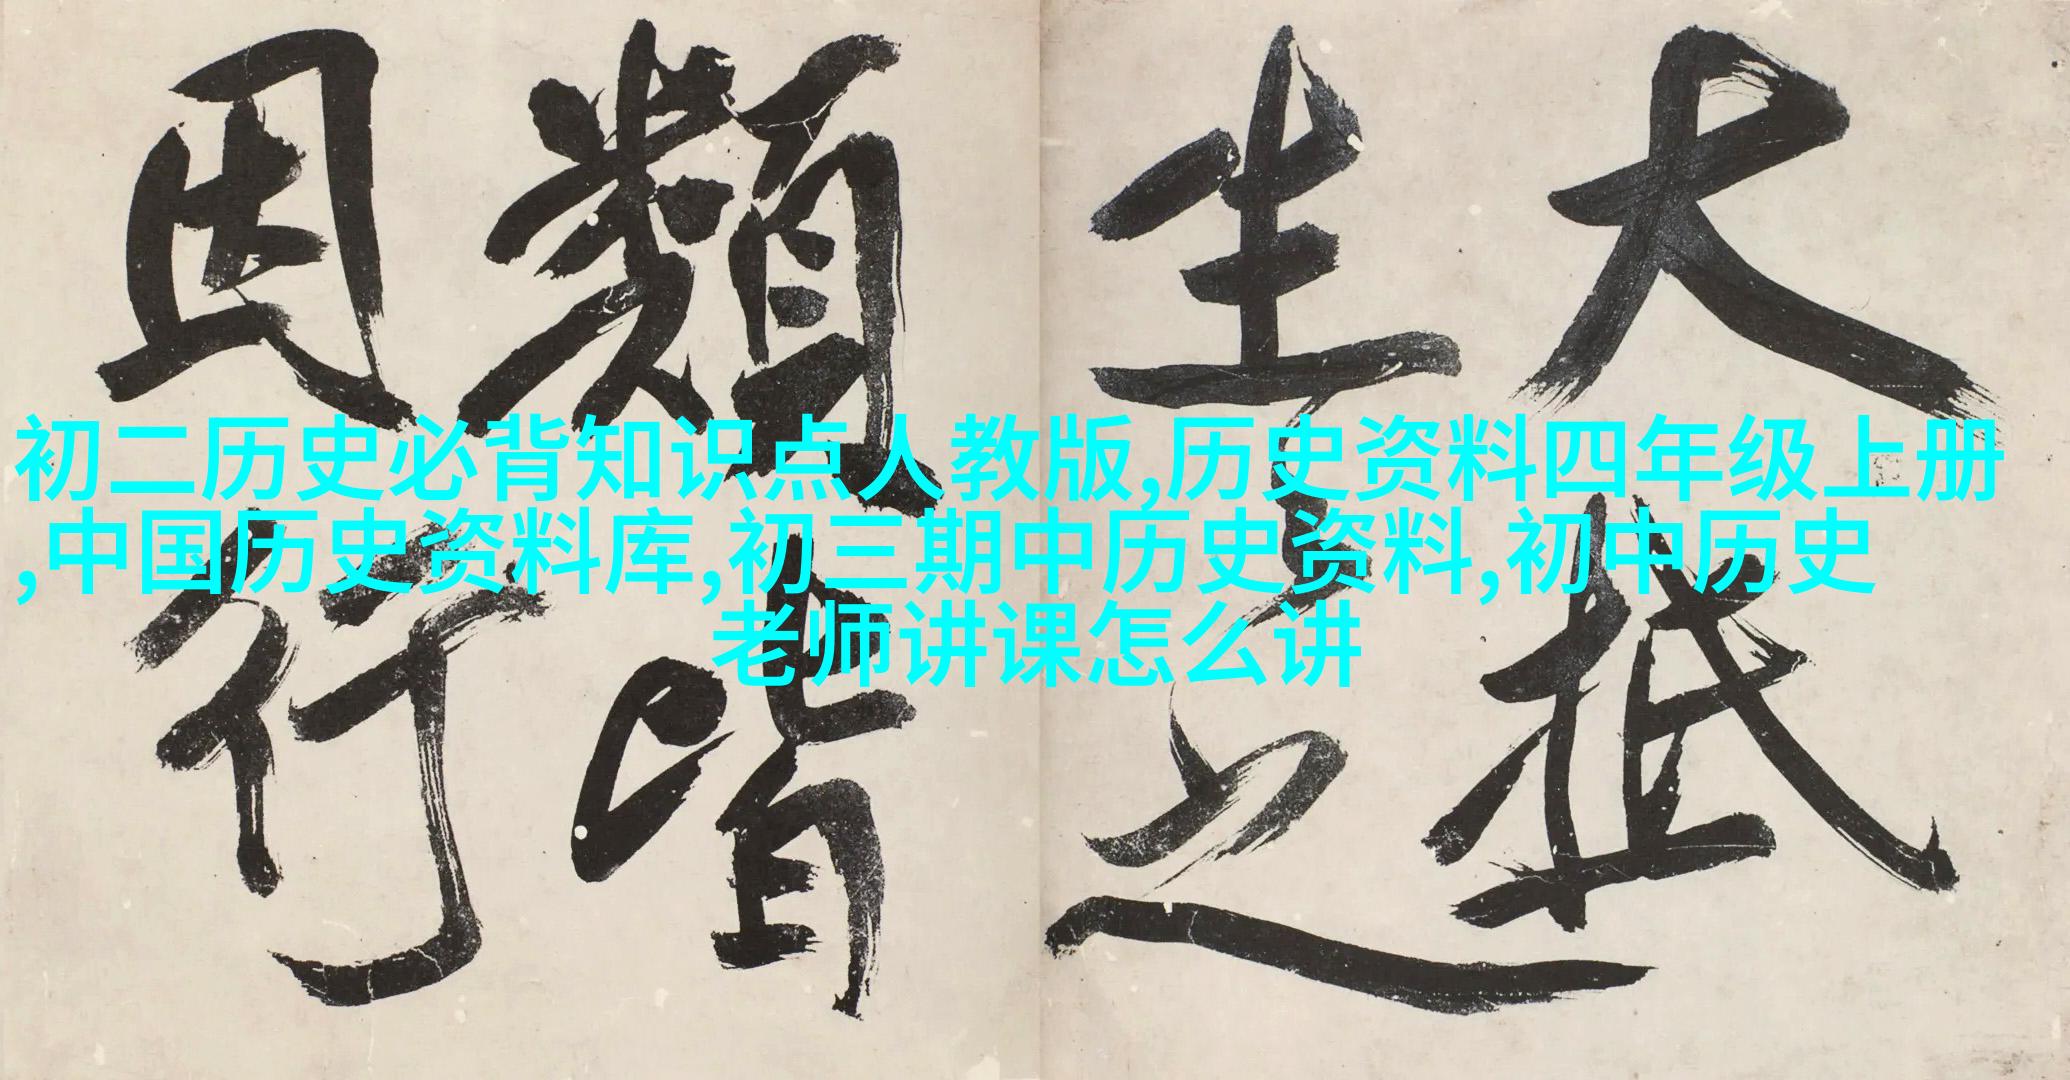 大抵
生之
類皆
因行
初二历史必背知识点人教版,历史资料四年级上册
,中国历史资料库,初三期中历史资料,初中历史
老师讲课怎么讲